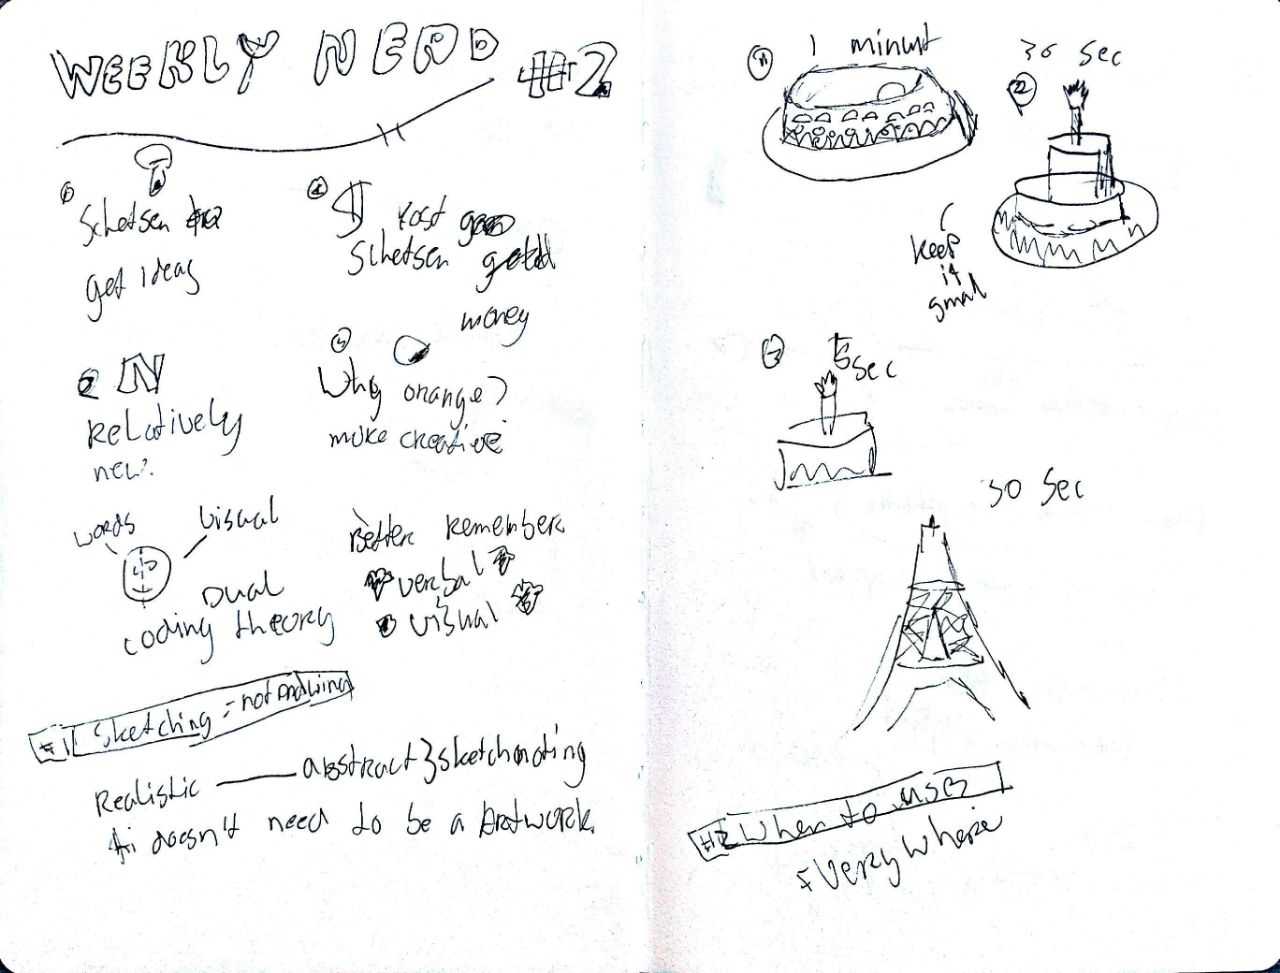 WEEKLY NERD #2
1
Schetsen
get ideas
2
Kost
Schetsen
money
N
Relatively
new?
4
Why orange?
make creative
words
visual
Dual
coding theory
Better remember
verbal
visual
#1 Sketching = not
Realistic — abstract } sketchnoting
doesn't need to be a artwork.
1
1 minut
30 sec
2
keep
it
small
3
5 sec
30 sec
#2 When to use
Everywhere